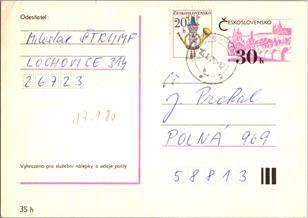 Odesílatel:
Miloslav ŠTRUMF
LOCHOVICE 314
26723
17.1.80
20
ČESKOSLOVENSKO
ČESKOSLOVENSKO
30 h
J. Prchal
POLNÁ 969
58813
Vyhrazeno pro služební nálepky a údaje pošty
35 h